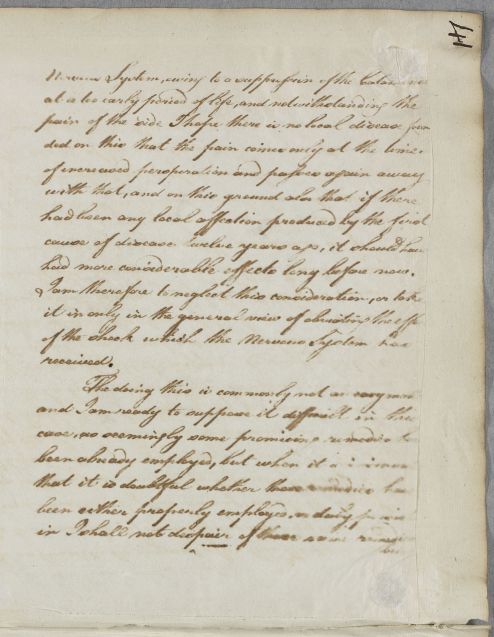 14
Nervous System, owing to a suppression of the
at a too early period of life, and notwithstanding the
pain of the side I hope there is no local disease foun
ded on this that the pain comes only at the time
of increased perspiration and passes again away
with that, and on this ground also that if there
had been any local affection produced by the first
cause of disease twelve years ago, it should have
had more considerable effects long before now.
I am therefore to neglect this consideration, or take
it in only in the general view of obviating the eff
of the shock which the Nervous System has
received.
The doing this is commonly not an easy
and I am ready to suppose it difficult in this
case, as seemingly some promising remedies
been already employed, but when it is
that it is doubtful whether these remedies have
been either properly employed, or duly
in I shall not despair of these same remedies